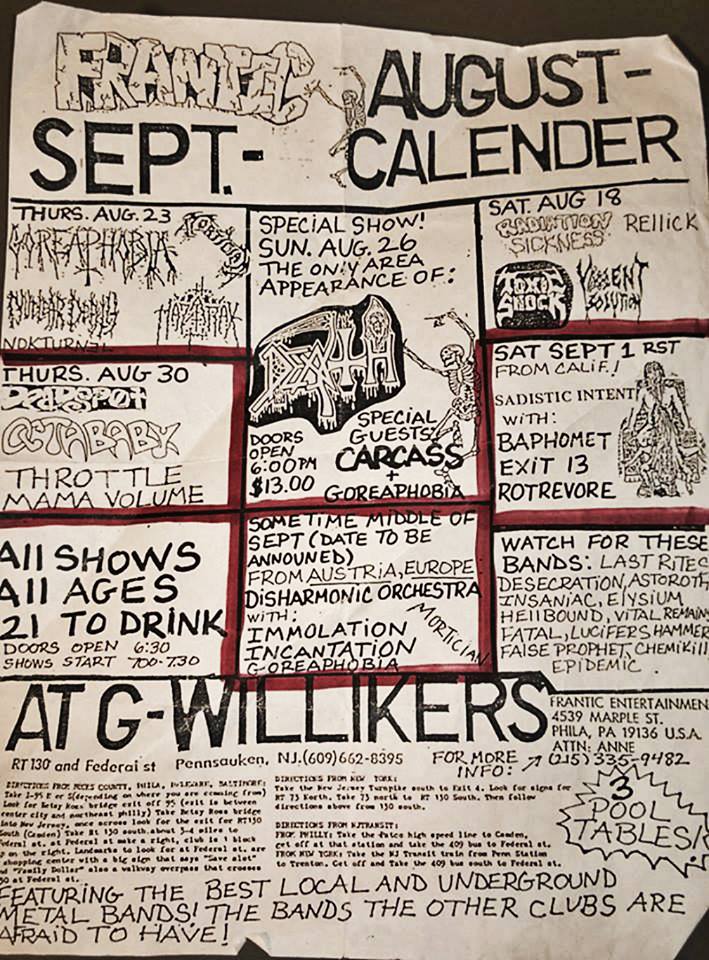 FRANTIC
AUGUST-
SEPT.- CALENDER
THURS. AUG. 23
GOREAPHOBIA
NUCLEAR DEATH
NOKTURNEL
SPECIAL SHOW!
SUN. AUG. 26
THE ONLY AREA
APPEARANCE OF:
DEATH
DOORS
OPEN
6:00PM
$13.00
SPECIAL
GUESTS:
CARCASS
+
GOREAPHOBIA
SAT. AUG 18
RADIATION
SICKNESS
RELLICK
TOXIC
SHOCK
VIOLENT
SOLUTION
THURS. AUG 30
DEADSPOT
OCTABABY
THROTTLE
MAMA VOLUME
SAT SEPT 1 RST
FROM CALIF.!
SADISTIC INTENT
WITH:
BAPHOMET
EXIT 13
ROTREVORE
All SHOWS
All AGES
21 TO DRINK
DOORS OPEN 6:30
SHOWS START 7:00-7:30
SOMETIME MIDDLE OF
SEPT (DATE TO BE
ANNOUNED)
FROM AUSTRIA, EUROPE
DISHARMONIC ORCHESTRA
WITH:
IMMOLATION
INCANTATION
GOREAPHOBIA
MORTICIAN
WATCH FOR THESE
BANDS: LAST RITES
DESECRATION, ASTOROTH
INSANIAC, ELYSIUM
HELLBOUND, VITAL REMAINS
FATAL, LUCIFERS HAMMER
FALSE PROPHET, CHEMIKILL
EPIDEMIC
AT G-WILLIKERS
RT 130 and Federal st Pennsauken, NJ. (609) 662-8395
FOR MORE
INFO:
FRANTIC ENTERTAINMEN
4539 MARPLE ST.
PHILA, PA 19136 U.S.A.
ATTN: ANNE
(215) 335-9482
3
POOL
TABLES!
DIRECTIONS FROM BUCKS COUNTY, PHILA, DELEWARE, BALTIMORE:
Take I-95 N or S(depending on where you are coming from)
Look for Betsy Ross bridge exit off 95 (exit is between
center city and northeast philly) Take Betsy Ross bridge
into New Jersey, once across look for the exit for RT130
South (Camden) Take Rt 130 south about 3-4 miles to
Federal st. at Federal make a right, club is 1 block
on the right. Landmarks to look for at Federal st. are
shopping center with a big sign that says "Save alot"
and "Family Dollar" also a walkway overpass that crosses
at Federal st.
DIRECTIONS FROM NEW YORK:
Take the New Jersey Turnpike south to Exit 4. Look for signs for
RT 73 North. Take 73 north to RT 130 South. Then follow
directions above from 130 south.
DIRECTIONS FROM NJTRANSIT:
FROM PHILLY: Take the Patco high speed line to Camden,
get off at that station and take the 409 bus to Federal st.
FROM NEW YORK: Take the NJ Transit train from Penn Station
to Trenton. Get off and Take the 409 bus south to Federal st.
FEATURING THE BEST LOCAL AND UNDERGROUND
METAL BANDS! THE BANDS THE OTHER CLUBS ARE
AFRAID TO HAVE!